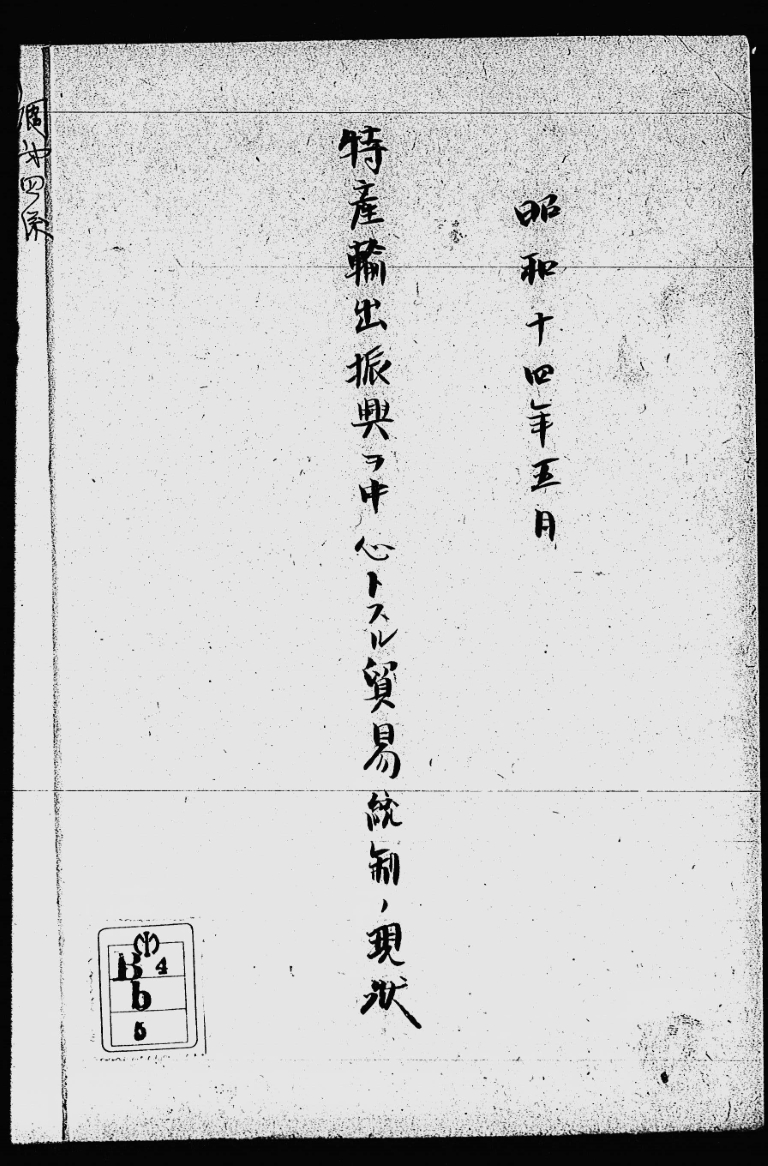 昭和十四年五月
特產輸出振興ヲ中心トスル貿易統制ノ現狀
四係
B4
b
5